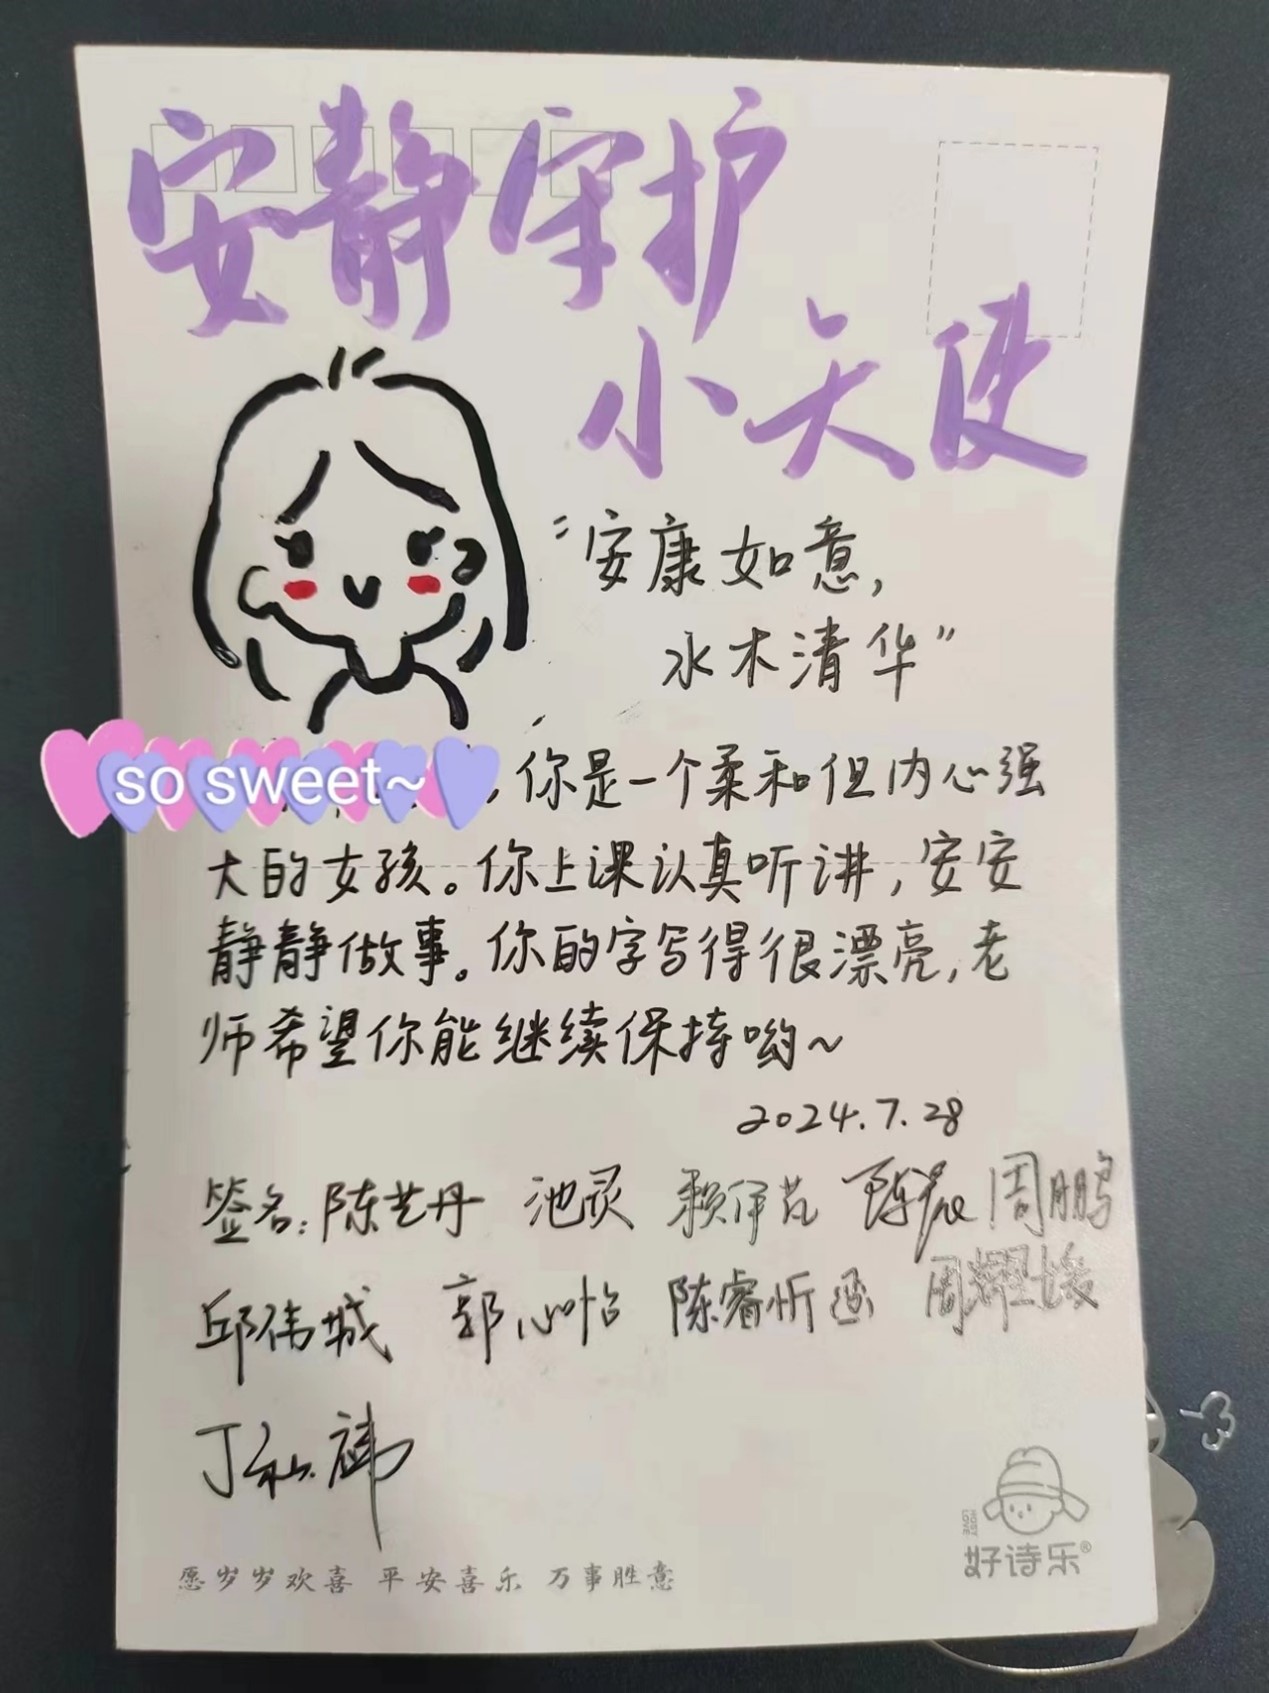 安静守护
小天使
“安康如意,
水木清华”
so sweet~
,你是一个柔和但内心强
大的女孩。你上课认真听讲,安安
静静做事。你的字写得很漂亮,老
师希望你能继续保持哟~
2024.7.28
签名:陈艺丹 池灵 赖伊芃 陈宸 周鹏
邱伟城 郭心怡 陈睿忻 周耀
丁祎
HOSY LOVE
好诗乐®
愿岁岁欢喜 平安喜乐 万事胜意